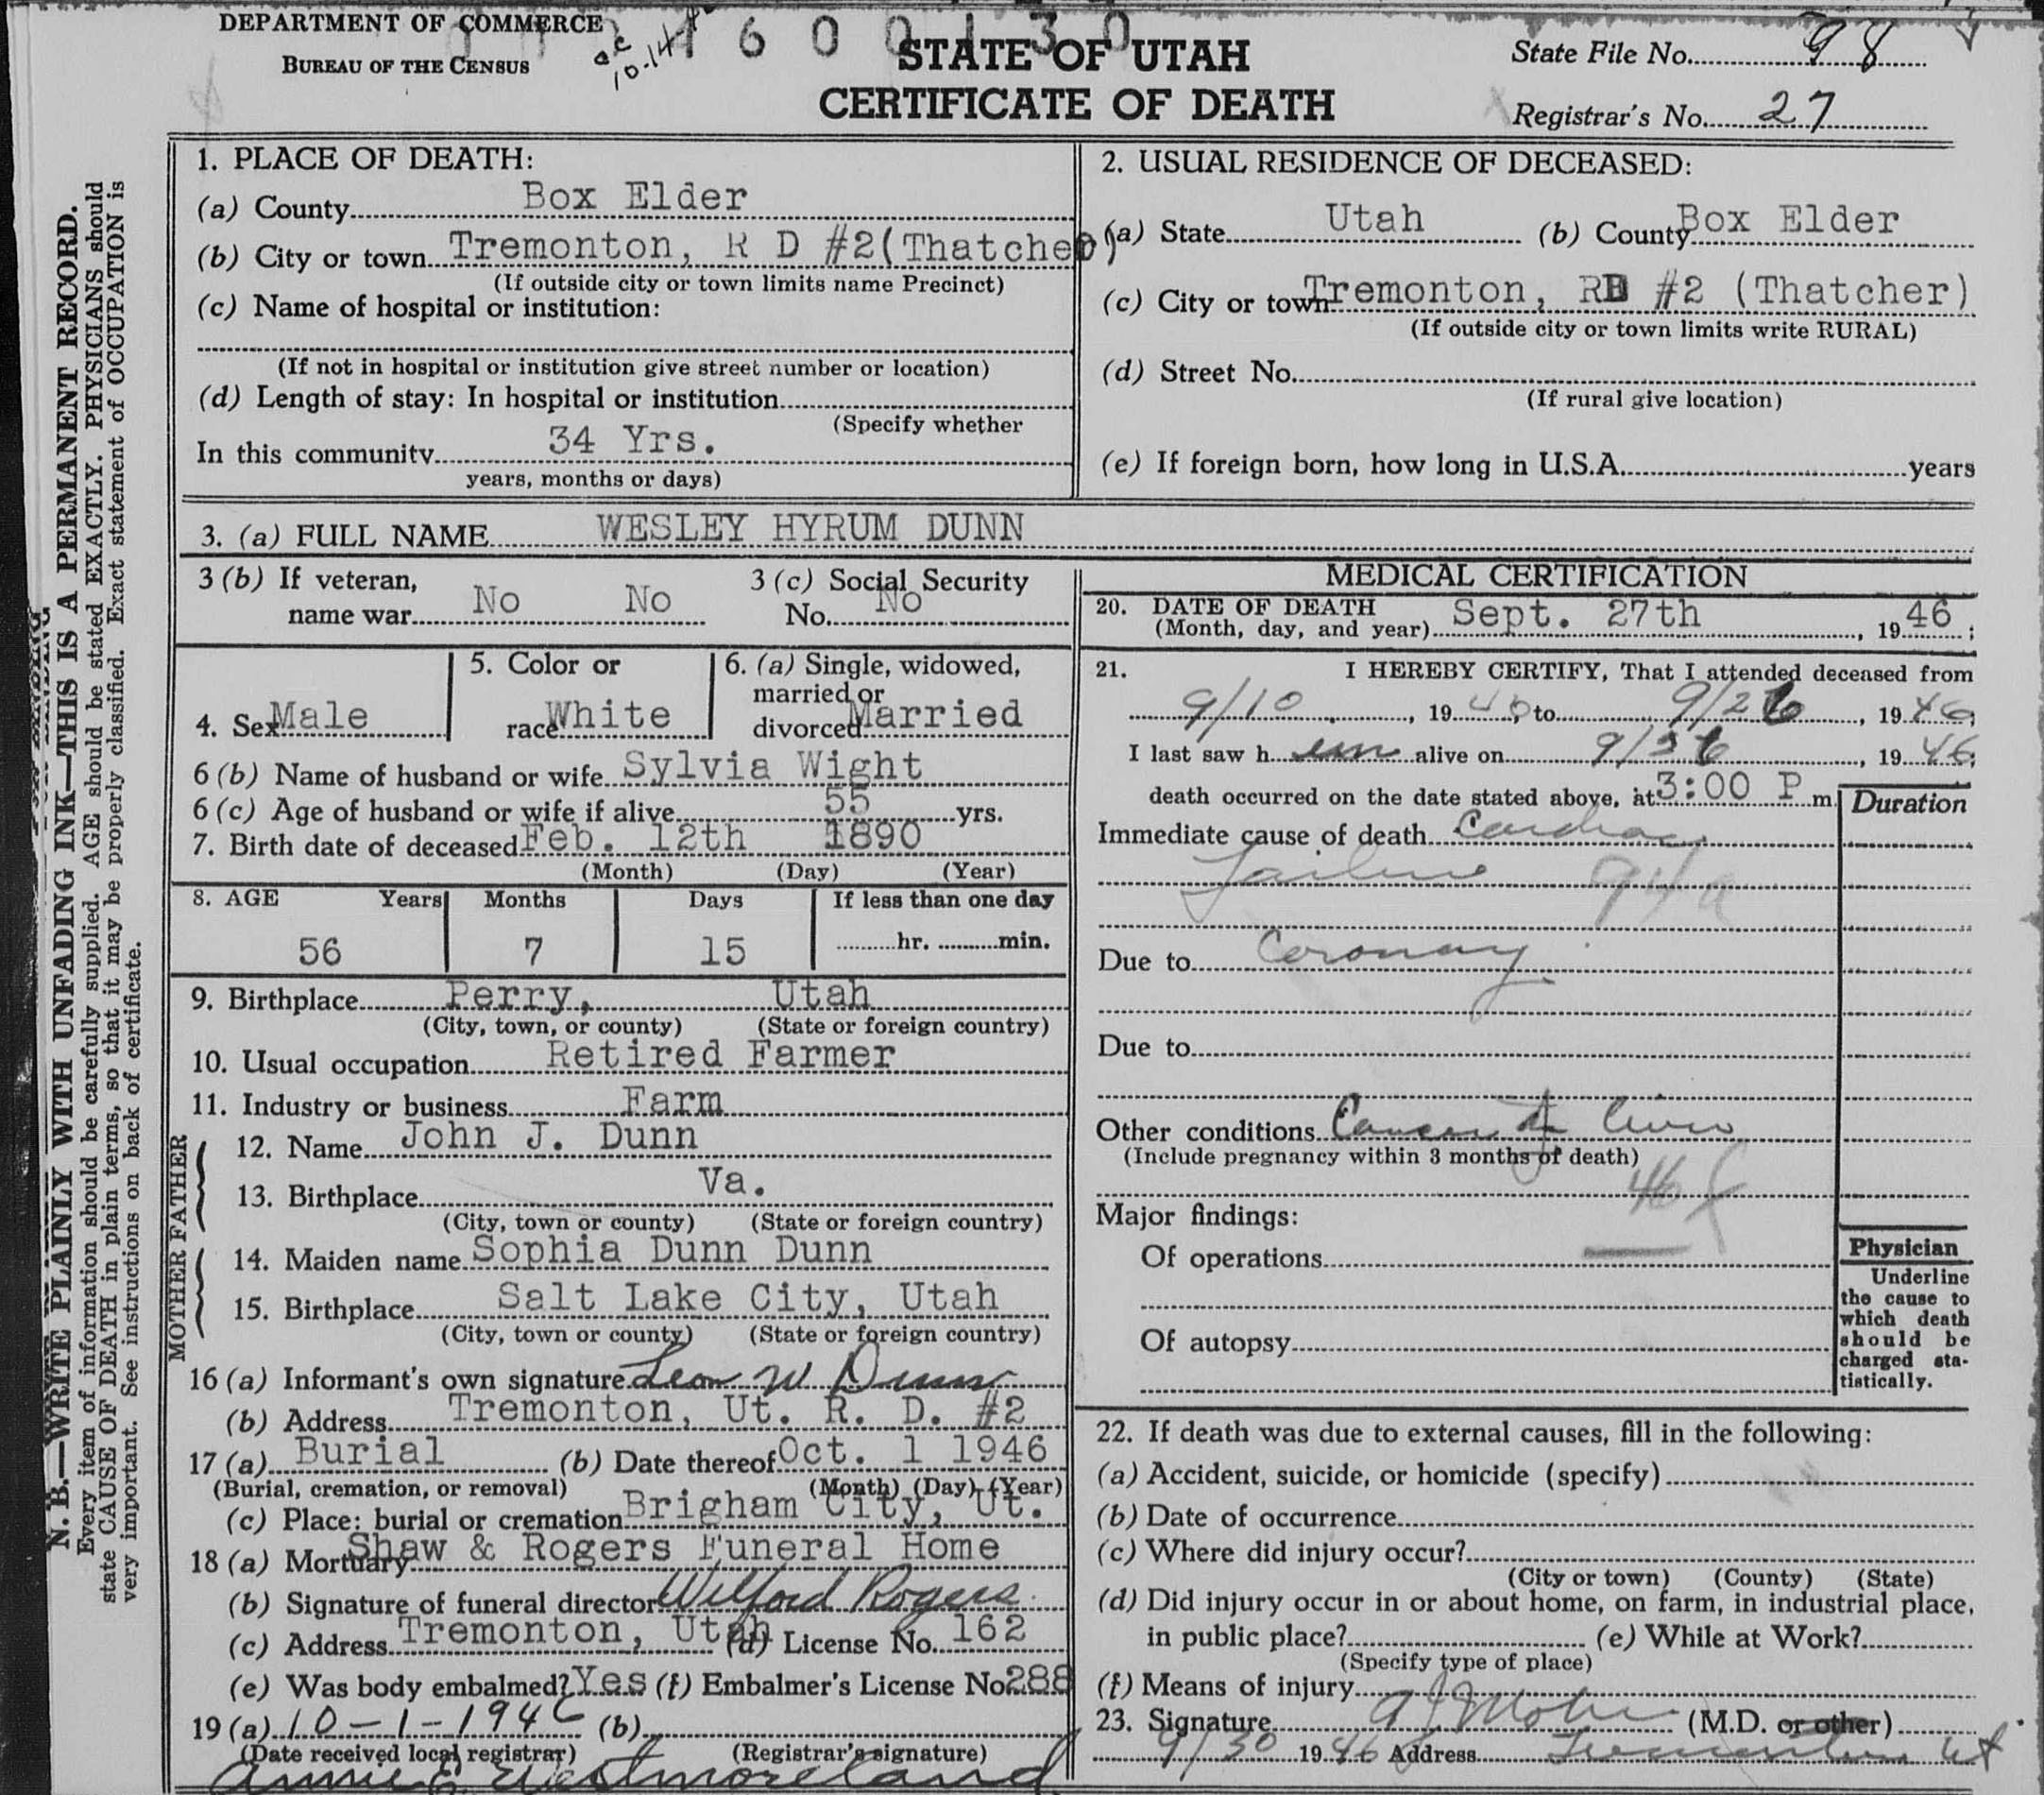 DEPARTMENT OF COMMERCE
BUREAU OF THE CENSUS
10-14
1 6 0 0 1 3 0
STATE OF UTAH
CERTIFICATE OF DEATH
State File No. 98
Registrar's No. 27
N. B.—WRITE PLAINLY WITH UNFADING INK—THIS IS A PERMANENT RECORD.
Every item of information should be carefully supplied. AGE should be stated EXACTLY. PHYSICIANS should
state CAUSE OF DEATH in plain terms, so that it may be properly classified. Exact statement of OCCUPATION is
very important. See instructions on back of certificate.
1. PLACE OF DEATH:
(a) County Box Elder
(b) City or town Tremonton, R D #2(Thatcher)
(If outside city or town limits name Precinct)
(c) Name of hospital or institution:
(If not in hospital or institution give street number or location)
(d) Length of stay: In hospital or institution
(Specify whether
In this community 34 Yrs.
years, months or days)
2. USUAL RESIDENCE OF DECEASED:
(a) State Utah (b) County Box Elder
(c) City or town Tremonton, RD #2 (Thatcher)
(If outside city or town limits write RURAL)
(d) Street No.
(If rural give location)
(e) If foreign born, how long in U.S.A. years
3. (a) FULL NAME WESLEY HYRUM DUNN
3 (b) If veteran,
name war No No
3 (c) Social Security
No. No
4. Sex Male
5. Color or
race White
6. (a) Single, widowed,
married or
divorced Married
6 (b) Name of husband or wife Sylvia Wight
6 (c) Age of husband or wife if alive 55 yrs.
7. Birth date of deceased Feb. 12th 1890
(Month) (Day) (Year)
8. AGE Years Months Days If less than one day
56 7 15 hr. min.
9. Birthplace Perry, Utah
(City, town, or county) (State or foreign country)
10. Usual occupation Retired Farmer
11. Industry or business Farm
FATHER
12. Name John J. Dunn
13. Birthplace Va.
(City, town or county) (State or foreign country)
MOTHER
14. Maiden name Sophia Dunn Dunn
15. Birthplace Salt Lake City, Utah
(City, town or county) (State or foreign country)
16 (a) Informant's own signature Leon W Dunn
(b) Address Tremonton, Ut. R. D. #2
17 (a) Burial (b) Date thereof Oct. 1 1946
(Burial, cremation, or removal) (Month) (Day) (Year)
(c) Place: burial or cremation Brigham City, Ut.
18 (a) Mortuary Shaw & Rogers Funeral Home
(b) Signature of funeral director Wilford Rogers
(c) Address Tremonton, Utah (d) License No. 162
(e) Was body embalmed? Yes (f) Embalmer's License No 288
19 (a) 10-1-1946 (b)
(Date received local registrar) (Registrar's signature)
Annie E. Westmoreland
MEDICAL CERTIFICATION
20. DATE OF DEATH
(Month, day, and year) Sept. 27th, 1946;
21. I HEREBY CERTIFY, That I attended deceased from
9/10, 1946, to 9/26, 1946;
I last saw h im alive on 9/26, 1946;
death occurred on the date stated above, at 3:00 P m.
Duration
Immediate cause of death Cardiac
Failure 94a
Due to Coronary
Due to
Other conditions Cancer of liver
(Include pregnancy within 3 months of death)
46 f
Major findings:
Of operations
Of autopsy
Physician
Underline
the cause to
which death
should be
charged sta-
tistically.
22. If death was due to external causes, fill in the following:
(a) Accident, suicide, or homicide (specify)
(b) Date of occurrence
(c) Where did injury occur?
(City or town) (County) (State)
(d) Did injury occur in or about home, on farm, in industrial place,
in public place? (e) While at Work?
(Specify type of place)
(f) Means of injury
23. Signature (M.D. or other)
9/30 1946 Address Tremonton Ut